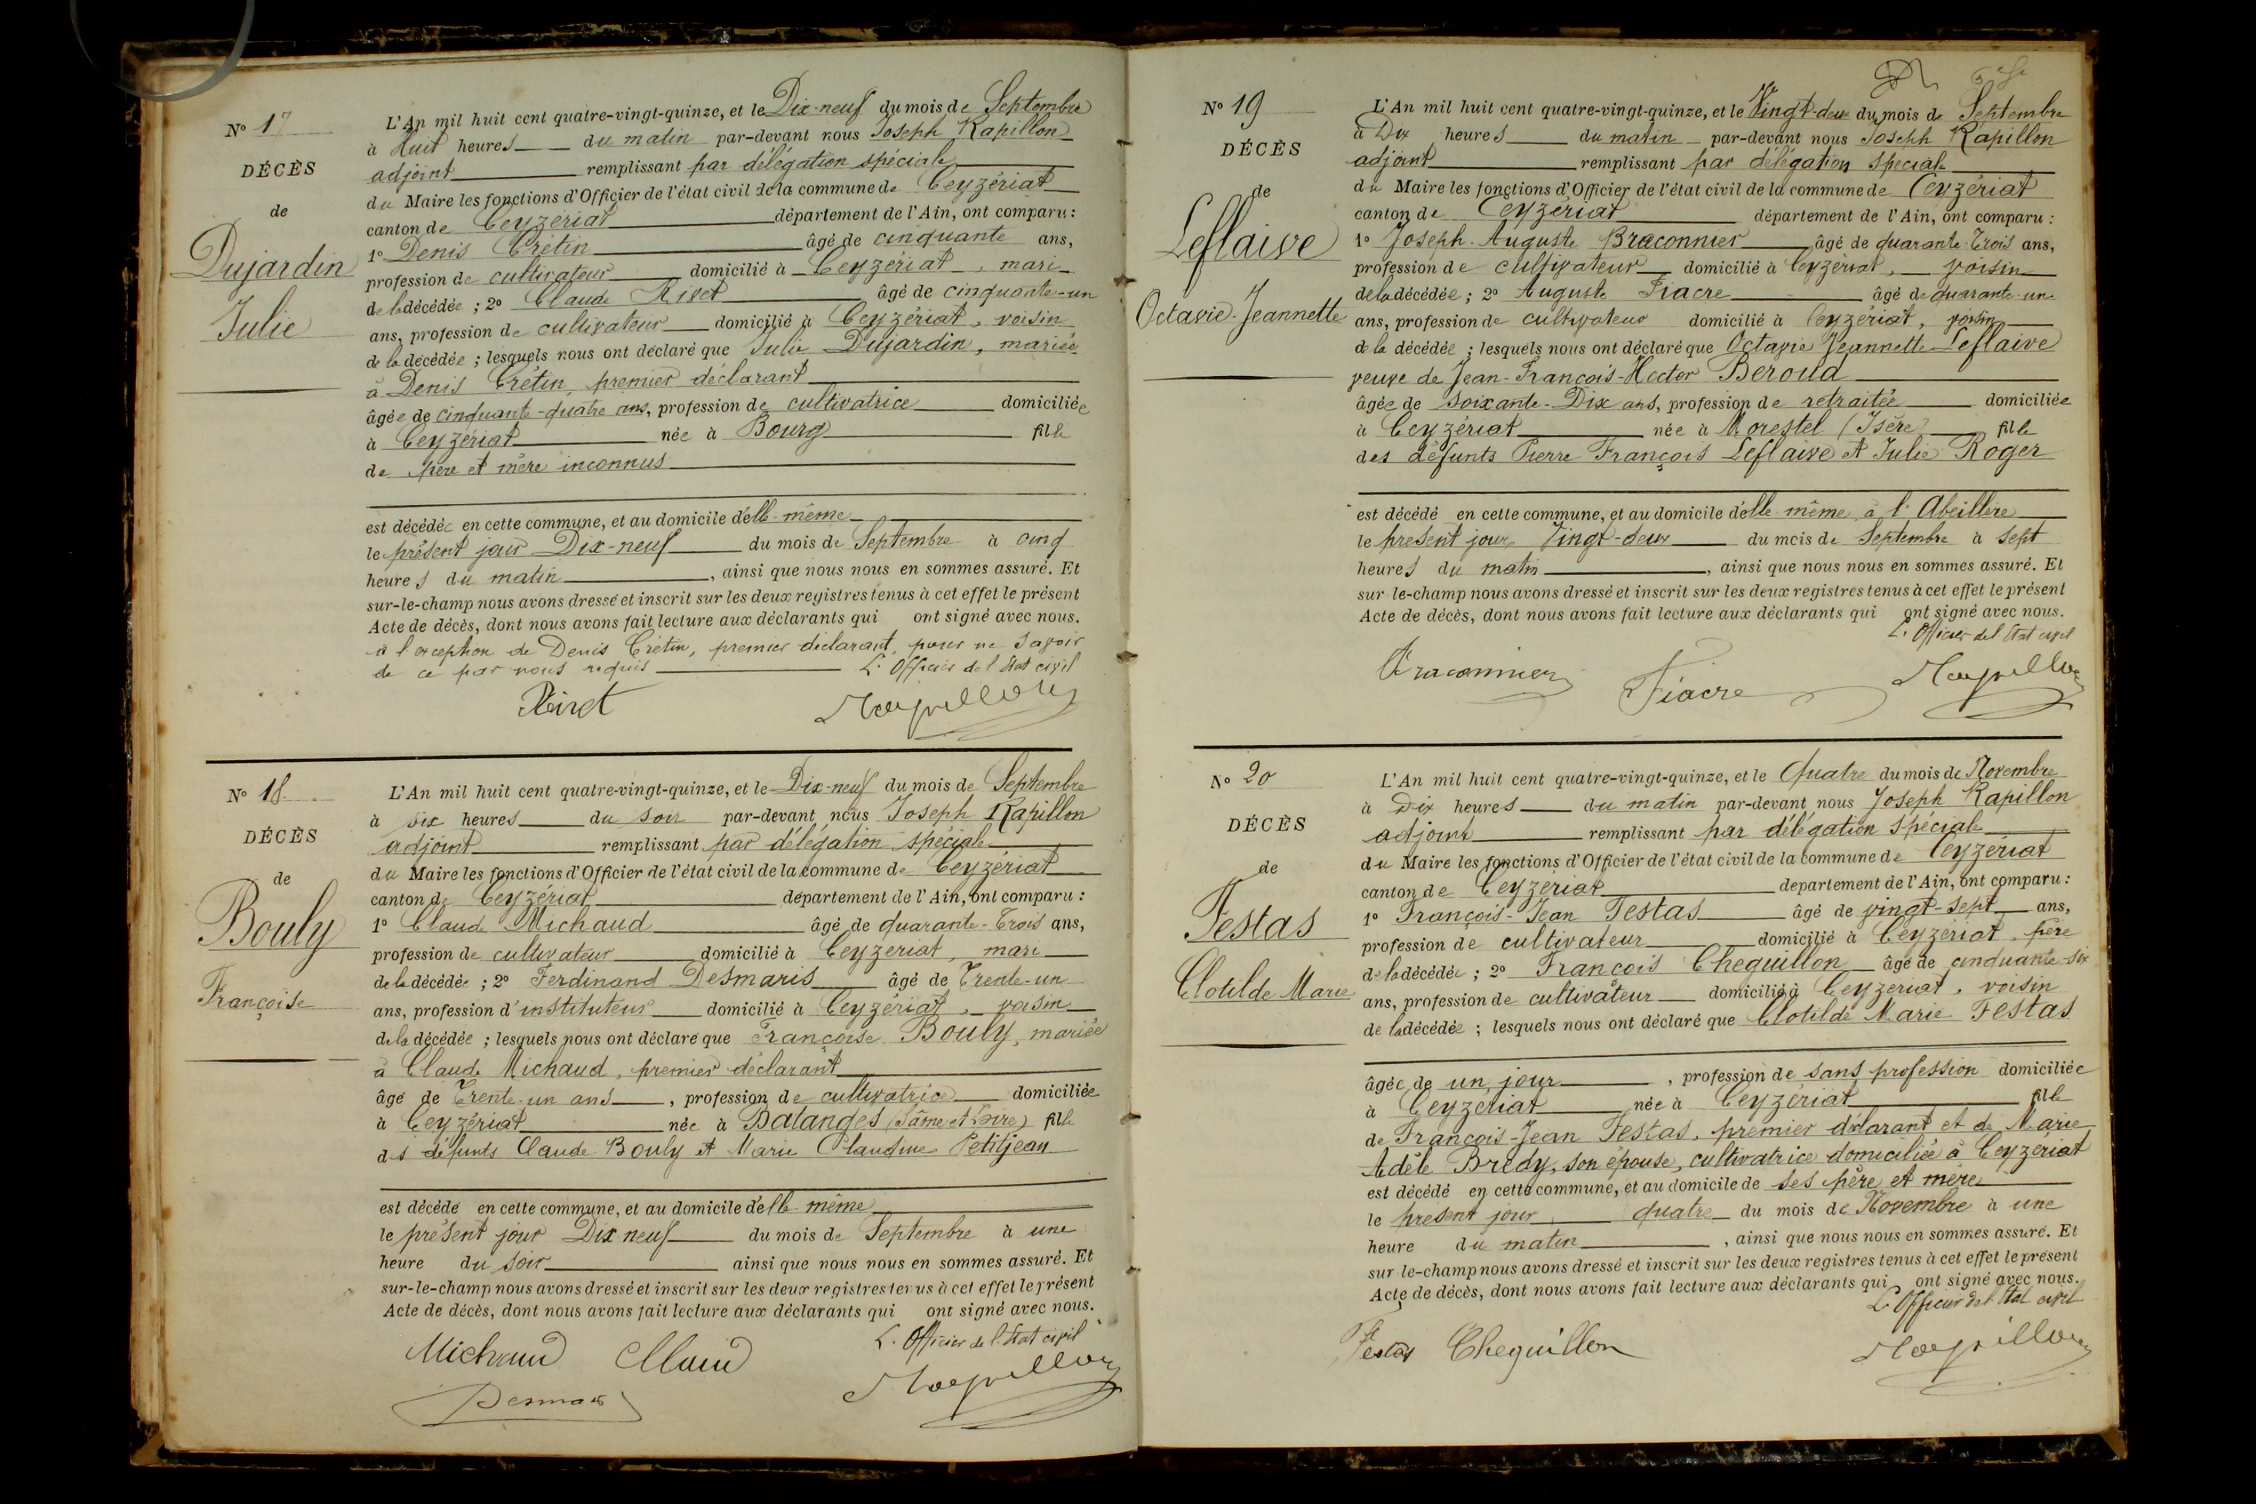 N° 17
DÉCÈS
de
Dujardin
Julie
L'An mil huit cent quatre-vingt-quinze, et le Dix-neuf du mois de Septembre
à Huit heures du matin par-devant nous Joseph Rapillon
adjoint remplissant par délégation spéciale
du Maire les fonctions d'Officier de l'état civil de la commune de Ceyzériat
canton de Ceyzériat département de l'Ain, ont comparu :
1° Denis Crétin âgé de cinquante ans,
profession de cultivateur domicilié à Ceyzériat, mari
de la décédée ; 2° Claude Rivet âgé de cinquante-un
ans, profession de cultivateur domicilié à Ceyzériat, voisin
de la décédée ; lesquels nous ont déclaré que Julie Dujardin, mariée
à Denis Crétin premier déclarant
âgée de cinquante-quatre ans, profession de cultivatrice domiciliée
à Ceyzériat née à Bourg fille
de père et mère inconnus
est décédée en cette commune, et au domicile d'elle-même
le présent jour Dix-neuf du mois de Septembre à cinq
heures du matin, ainsi que nous nous en sommes assuré. Et
sur-le-champ nous avons dressé et inscrit sur les deux registres tenus à cet effet le présent
Acte de décès, dont nous avons fait lecture aux déclarants qui ont signé avec nous.
à l'exception de Denis Crétin, premier déclarant, pour ne savoir
de ce par nous requis L'Officier de l'Etat civil
Rivet Rapillon
N° 18
DÉCÈS
de
Bouly
Françoise
L'An mil huit cent quatre-vingt-quinze, et le Dix-neuf du mois de Septembre
à six heures du soir par-devant nous Joseph Rapillon
adjoint remplissant par délégation spéciale
du Maire les fonctions d'Officier de l'état civil de la commune de Ceyzériat
canton de Ceyzériat département de l'Ain, ont comparu :
1° Claude Michaud âgé de quarante-trois ans,
profession de cultivateur domicilié à Ceyzériat, mari
de la décédée ; 2° Ferdinand Desmaris âgé de Trente-un
ans, profession d'instituteur domicilié à Ceyzériat, voisin
de la décédée ; lesquels nous ont déclaré que Françoise Bouly, mariée
à Claude Michaud, premier déclarant
âgé de Trente-un ans, profession de cultivatrice domiciliée
à Ceyzériat née à Batanges (Saône et Loire) fille
des défunts Claude Bouly et Marie Claudine Petitjean
est décédé en cette commune, et au domicile d'elle-même
le présent jour Dix neuf du mois de Septembre à une
heure du soir ainsi que nous nous en sommes assuré. Et
sur-le-champ nous avons dressé et inscrit sur les deux registres tenus à cet effet le présent
Acte de décès, dont nous avons fait lecture aux déclarants qui ont signé avec nous.
L'Officier de l'Etat civil
Michaud Rapillon
Desmaris
N° 19
DÉCÈS
de
Leflaive
Octavie-Jeannette
L'An mil huit cent quatre-vingt-quinze, et le Vingt-deux du mois de Septembre
à Dix heures du matin par-devant nous Joseph Rapillon
adjoint remplissant par délégation spéciale
du Maire les fonctions d'Officier de l'état civil de la commune de Ceyzériat
canton de Ceyzériat département de l'Ain, ont comparu :
1° Joseph-Auguste Braconnier âgé de quarante-Trois ans,
profession de cultivateur domicilié à Ceyzériat, voisin
de la décédée ; 2° Auguste Fiacre âgé de quarante-un
ans, profession de cultivateur domicilié à Ceyzériat, voisin
de la décédée ; lesquels nous ont déclaré que Octavie Jeannette Leflaive
veuve de Jean-François-Hector Beroud
âgée de soixante-Dix ans, profession de retraitée domiciliée
à Ceyzériat née à Morestel (Isère) fille
des défunts Pierre François Leflaive et Julie Roger
est décédé en cette commune, et au domicile d'elle-même à l'Abeillere
le présent jour Vingt-deux du mois de Septembre à sept
heures du matin, ainsi que nous nous en sommes assuré. Et
sur-le-champ nous avons dressé et inscrit sur les deux registres tenus à cet effet le présent
Acte de décès, dont nous avons fait lecture aux déclarants qui ont signé avec nous.
L'Officier de l'Etat civil
Braconnier Fiacre Rapillon
N° 20
DÉCÈS
de
Festas
Clotilde Marie
L'An mil huit cent quatre-vingt-quinze, et le Quatre du mois de Novembre
à Dix heures du matin par-devant nous Joseph Rapillon
adjoint remplissant par délégation spéciale
du Maire les fonctions d'Officier de l'état civil de la commune de Ceyzériat
canton de Ceyzériat département de l'Ain, ont comparu :
1° François-Jean Festas âgé de vingt-sept ans,
profession de cultivateur domicilié à Ceyzériat, père
de la décédée ; 2° François Chequillon âgé de cinquante-six
ans, profession de cultivateur domicilié à Ceyzériat, voisin
de la décédée ; lesquels nous ont déclaré que Clotilde Marie Festas
âgée de un jour, profession de sans profession domiciliée
à Ceyzériat née à Ceyzériat fille
de François-Jean Festas, premier déclarant et de Marie
Adèle Bredy, son épouse, cultivatrice domiciliée à Ceyzériat
est décédé en cette commune, et au domicile de ses père et mère
le présent jour, quatre du mois de Novembre à une
heure du matin, ainsi que nous nous en sommes assuré. Et
sur-le-champ nous avons dressé et inscrit sur les deux registres tenus à cet effet le présent
Acte de décès, dont nous avons fait lecture aux déclarants qui ont signé avec nous.
L'Officier de l'Etat civil
Festas Chequillon Rapillon